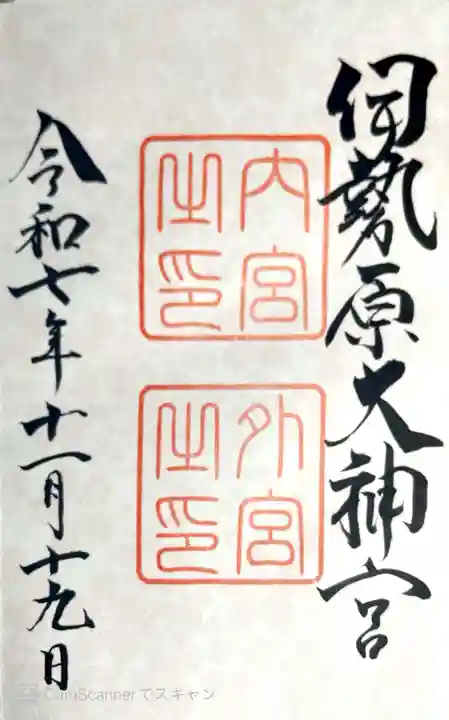 伊勢原大神宮
内宮之印
外宮之印
令和七年十一月十九日
CamScannerでスキャン